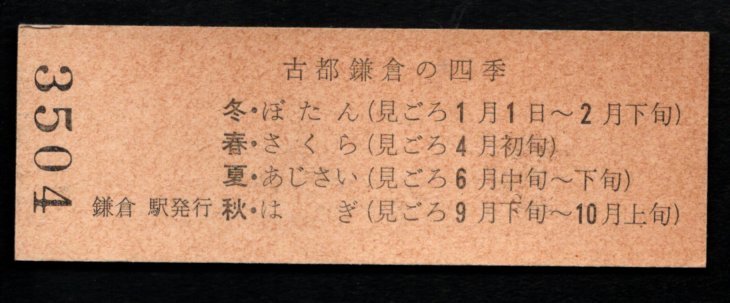 3504
古都鎌倉の四季
冬・ぼたん(見ごろ1月1日〜2月下旬)
春・さくら(見ごろ4月初旬)
夏・あじさい(見ごろ6月中旬〜下旬)
鎌倉 駅発行 秋・はぎ(見ごろ9月下旬〜10月上旬)